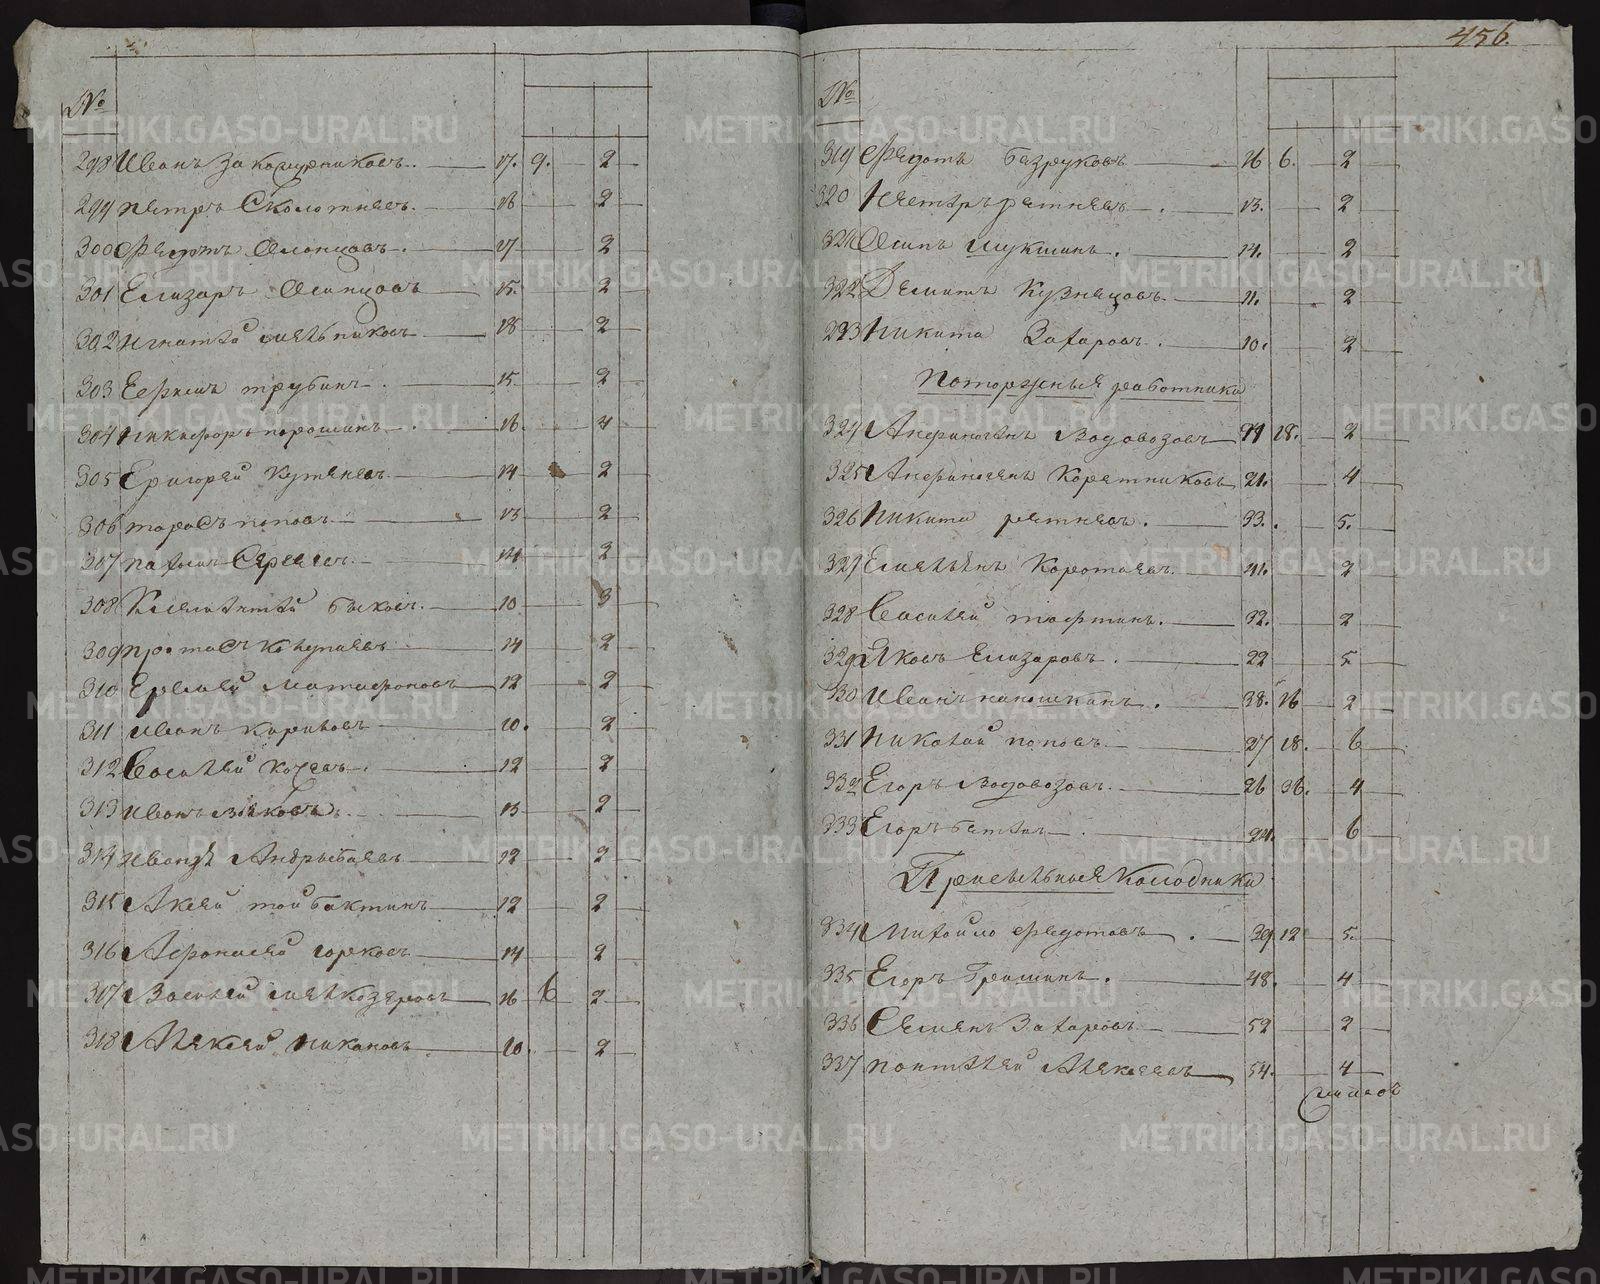 456.
№
298 Иванъ Закожурниковъ. 17. 9. 2
299 петръ Сколотневъ. 16 2
300 Федотъ Олонцовъ. 17 2
301 Елизаръ Осинцовъ 15. 2
302 Игнатей мельниковъ 18 2
303 Ефимъ трубинъ. 15. 2
304 никифоръ порошинъ. 16. 4
305 Григорей Кутеневъ 14 2
306 тарасъ поповъ. 13 2
307 пахомъ Сергеевъ. 14 2
308 Клементей быковъ. 10 3
309 протасъ 14 2
310 Еремей Матафоновъ 12 2
311 иванъ Кариповъ 10. 2
312 Василей Кочевъ. 12 2
313 иванъ волковъ. 13 2
314 иванъ Андрыбаевъ 12 2
315 Аксей той бактинъ 12 2
316 Афонасей горковъ 14 2
317 Василей мелкозеровъ 16 6 2
318 Алексей никоновъ 10. 2
№
319 Федотъ безруковъ 16 6. 2
320 петръ ретневъ. 13. 2
321 Осипъ шукшинъ. 14. 2
322 Демитъ Кузнецовъ. 11. 2
293 никита Захаровъ. 10. 2
Поторжныя работники
324 Анфиногенъ Водовозовъ 41 18. 2
325 Анфиногенъ Коретниковъ 21. 4
326 никита ретневъ. 33. 5.
327 Емельянъ Коротаевъ. 41. 2
328 Василей тюфтинъ. 32. 2
329 Яковъ Елизаровъ. 22 5
30 иванъ паюшкинъ. 38. 16 2
331 николай поповъ. 27 18. 6
332 Егоръ водовозовъ. 26 36. 4
333 Егоръ бетевъ. 24. 6
Присыльныя Колодники
334 михайло федотовъ. 39. 12 5.
335 Егоръ Гришинъ. 48. 4
336 Семенъ Захаровъ. 52 2
337 понтелей Алексеевъ 54. 4